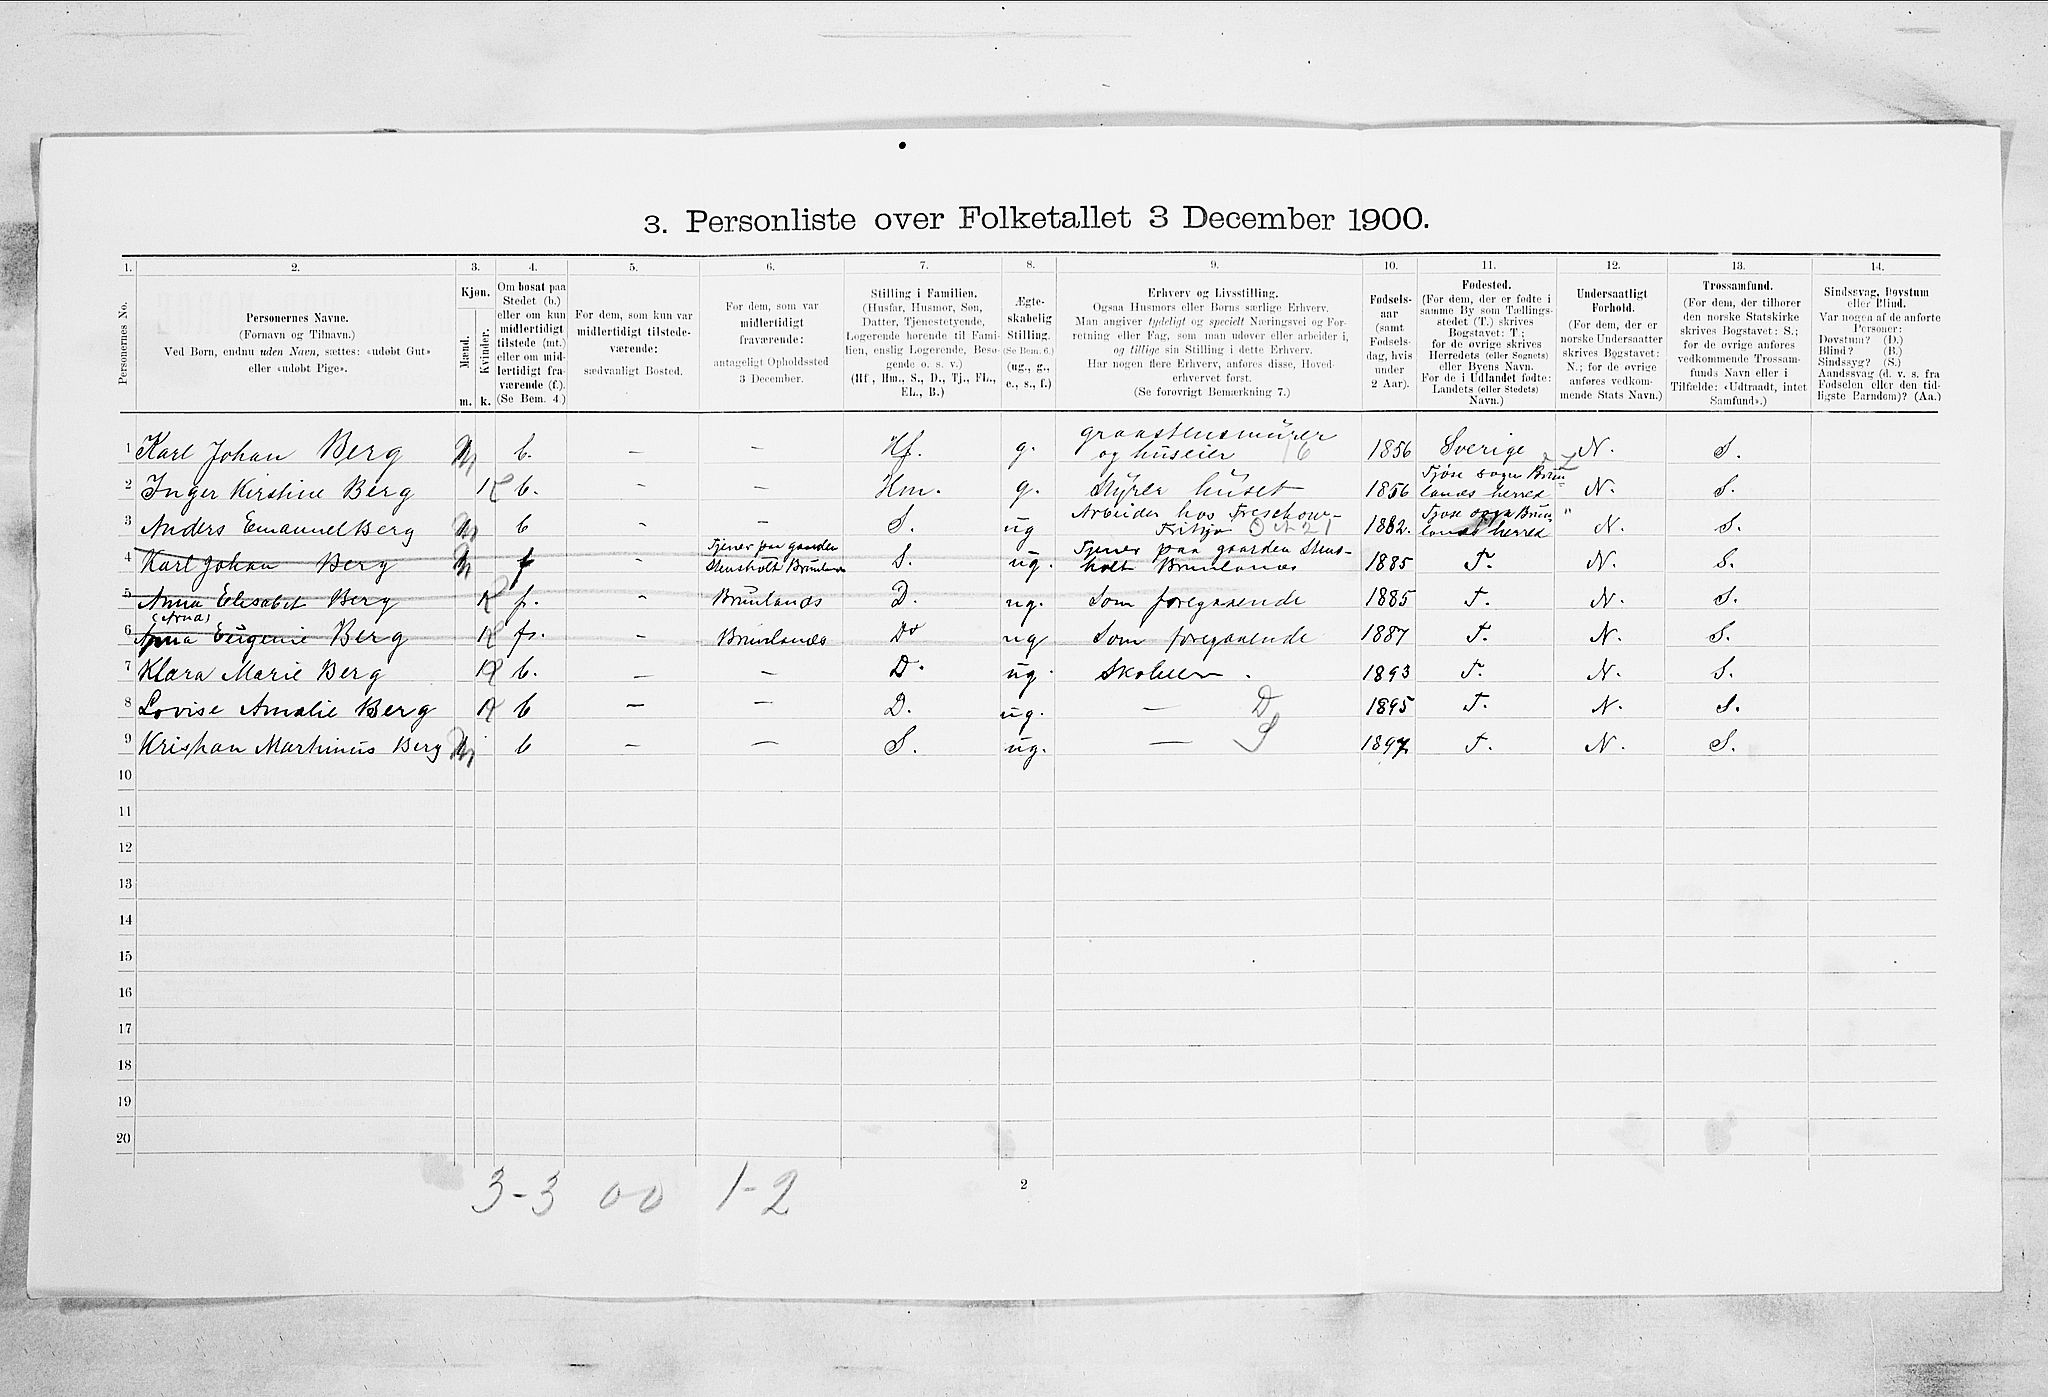 3. Personliste over Folketallet 3 December 1900.
1. 2. 3. 4. 5. 6. 7. 8. 9. 10. 11. 12. 13. 14.
Personernes No.
Personernes Navne.
(Fornavn og Tilnavn.)
Ved Børn, endnu uden Navn, sættes: «udøbt Gut»
eller «udøbt Pige».
Kjøn.
Mænd.
Kvinder.
m. k.
Om bosat paa
Stedet (b.)
eller om kun
midlertidigt
tilstede (mt.)
eller om mid-
lertidigt fra-
værende (f.).
(Se Bem. 4.)
For dem, som kun var
midlertidigt tilstede-
værende:
sædvanligt Bosted.
For dem, som var
midlertidigt
fraværende:
antageligt Opholdssted
3 December.
Stilling i Familien.
(Husfar, Husmor, Søn,
Datter, Tjenestetyende,
Logerende hørende til Fami-
lien, enslig Logerende, Besø-
gende o. s. v.)
(Hf., Hm., S., D., Tj., FL.,
EL., B.)
Ægte-
skabelig
Stilling.
(Se Bem. 6.)
(ug., g.,
e., s., f.)
Erhverv og Livsstilling.
Ogsaa Husmors eller Børns særlige Erhverv.
Man angiver tydeligt og specielt Næringsvei og For-
retning eller Fag, som man udøver eller arbeider i,
og tillige sin Stilling i dette Erhverv.
Har nogen flere Erhverv, anføres disse, Hoved-
erhvervet først.
(Se forøvrigt Bemærkning 7.)
Fødsels-
aar
(samt
Fødsels-
dag, hvis
under
2 Aar).
Fødested.
(For dem, der er fødte i
samme By som Tællings-
stedet (T.) skrives
Bogstavet: T.;
for de øvrige skrives
Herredets (eller Sognets)
eller Byens Navn.
For de i Udlandet fødte:
Landets (eller Stedets)
Navn.)
Undersaatligt
Forhold.
(For dem, der er
norske Undersaatter
skrives Bogstavet:
N.; for de øvrige
anføres vedkom-
mende Stats Navn.)
Trossamfund.
(For dem, der tilhører
den norske Statskirke
skrives Bogstavet: S.;
for de øvrige anføres
vedkommende Trossam-
funds Navn eller i
Tilfælde: «Udtraadt, intet
Samfund».)
Sindssvag, Døvstum
eller Blind.
Var nogen af de anførte
Personer:
Døvstum? (D.)
Blind? (B.)
Sindssyg? (S.)
Aandssvag (d. v. s. fra
Fødselen eller den tid-
ligste Barndom)? (Aa.)
1 Karl Johan Berg M b. – – Hf. g. graastensmürer
og huseier 16 1856 Sverige N. S.
2 Inger Kirstine Berg K b. – – Hm. g. Styrer huset 1856 Tjøse sogn Brun-
lanes herred N. S.
3 Anders Emanuel Berg M b – – S. ug Arbeider hos Treschow-
Fritzø 1882. Tjøse sogn Brun-
lanes herred N. S.
4 Karl Johan Berg M f – Tjener paa gaarden
Stensholt Brunlanes S. ug. Tjener paa gaarden Stens-
holt Brunlanes 1885 T. N. S.
5 Anna Elisabet Berg K f. – Brunlanes D. ug. Som foregaaende 1885 T. N. S.
(Arna)
6 Anna Eugenie Berg K f. – Brunlanes D. ug Som foregaaende 1887 T. N. S.
7 Klara Marie Berg K b. – – D. ug. Skolelev. 1893 T. N. S.
8 Lovise Amalie Berg K b – – D. ug. – D 1895 T. N. S.
9 Kristian Martinius Berg M b – – S. ug. – S 1897 T. N. S.
10
11
12
13
14
15
16
17
18
19
20
3-3 00 1-2
2